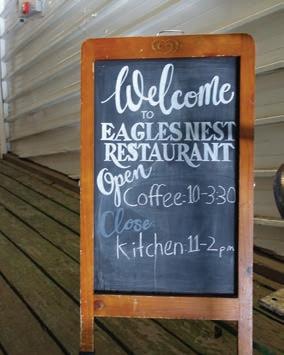 Welcome
TO
EAGLES NEST
RESTAURANT
Open
Coffee:10-3:30
Close
Kitchen:11-2pm